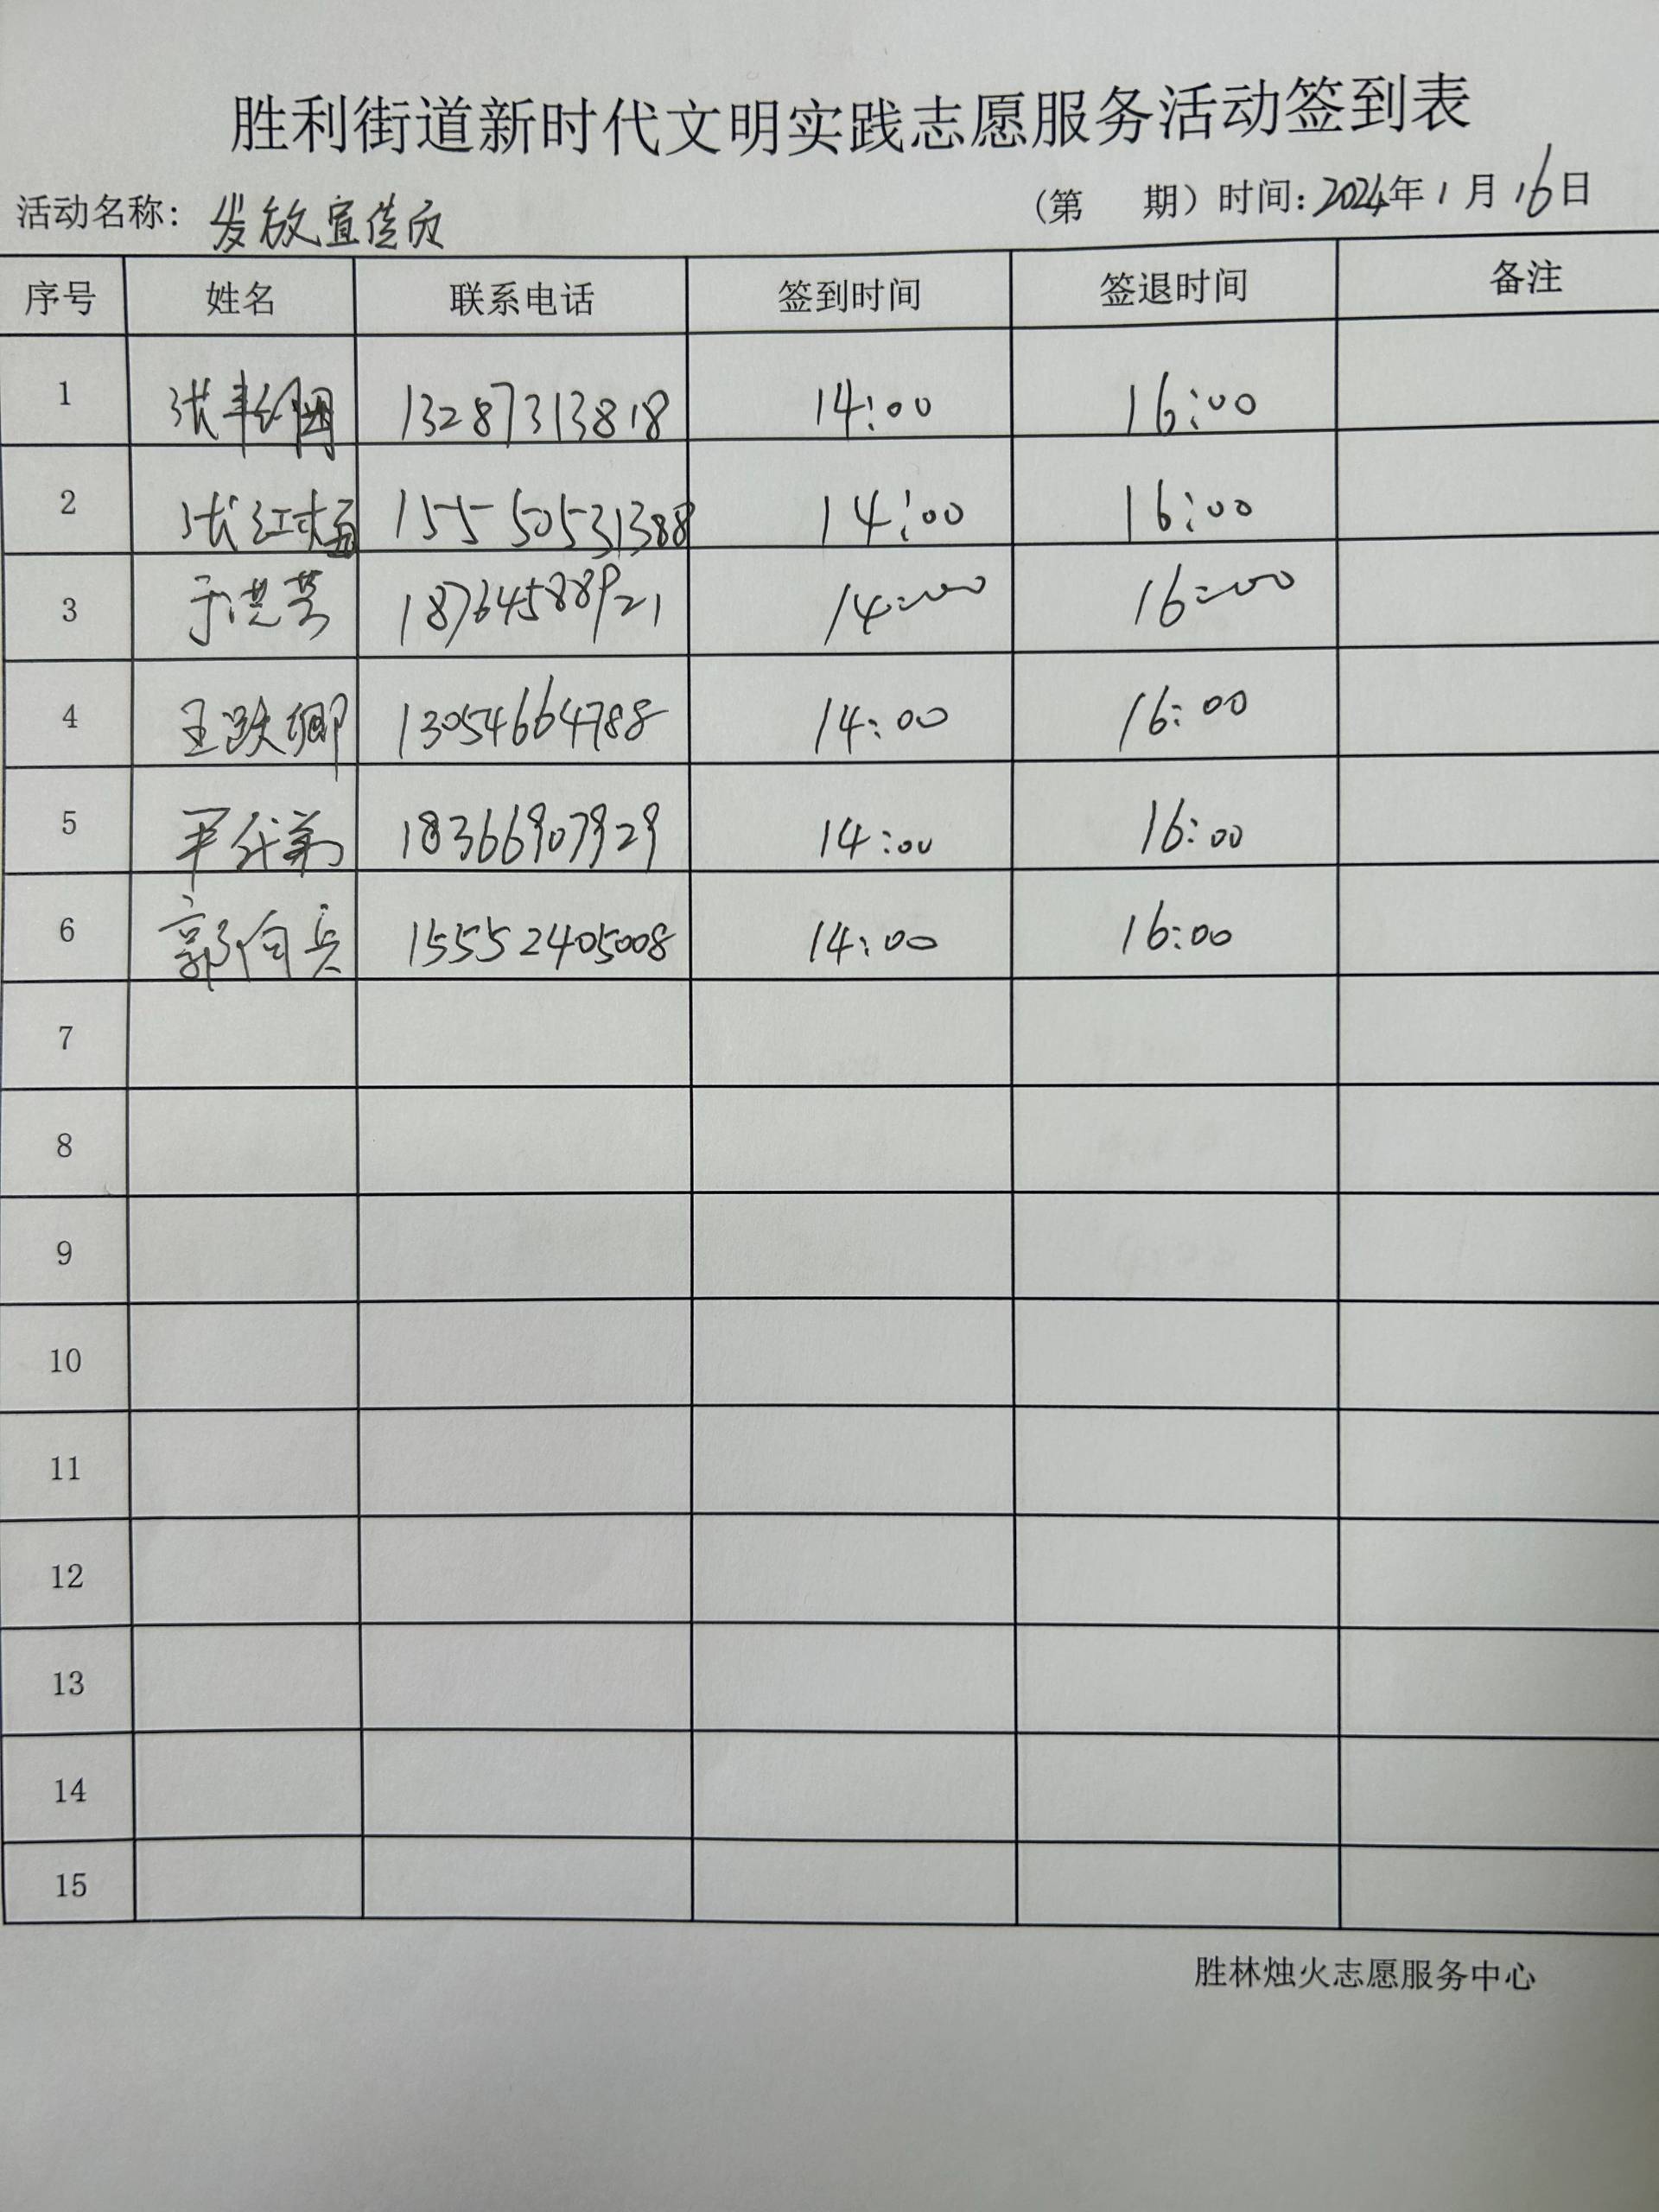 胜利街道新时代文明实践志愿服务活动签到表
活动名称：发放宣传页 （第 期）时间：2024年1月16日
序号 姓名 联系电话 签到时间 签退时间 备注
1 张 13287313818 14:00 16:00
2 张红梅 15550531388 14:00 16:00
3 于洪芳 18764588921 14:00 16:00
4 王跃卿 13054664788 14:00 16:00
5 18366907929 14:00 16:00
6 郭向兵 15552405008 14:00 16:00
7
8
9
10
11
12
13
14
15
胜林烛火志愿服务中心